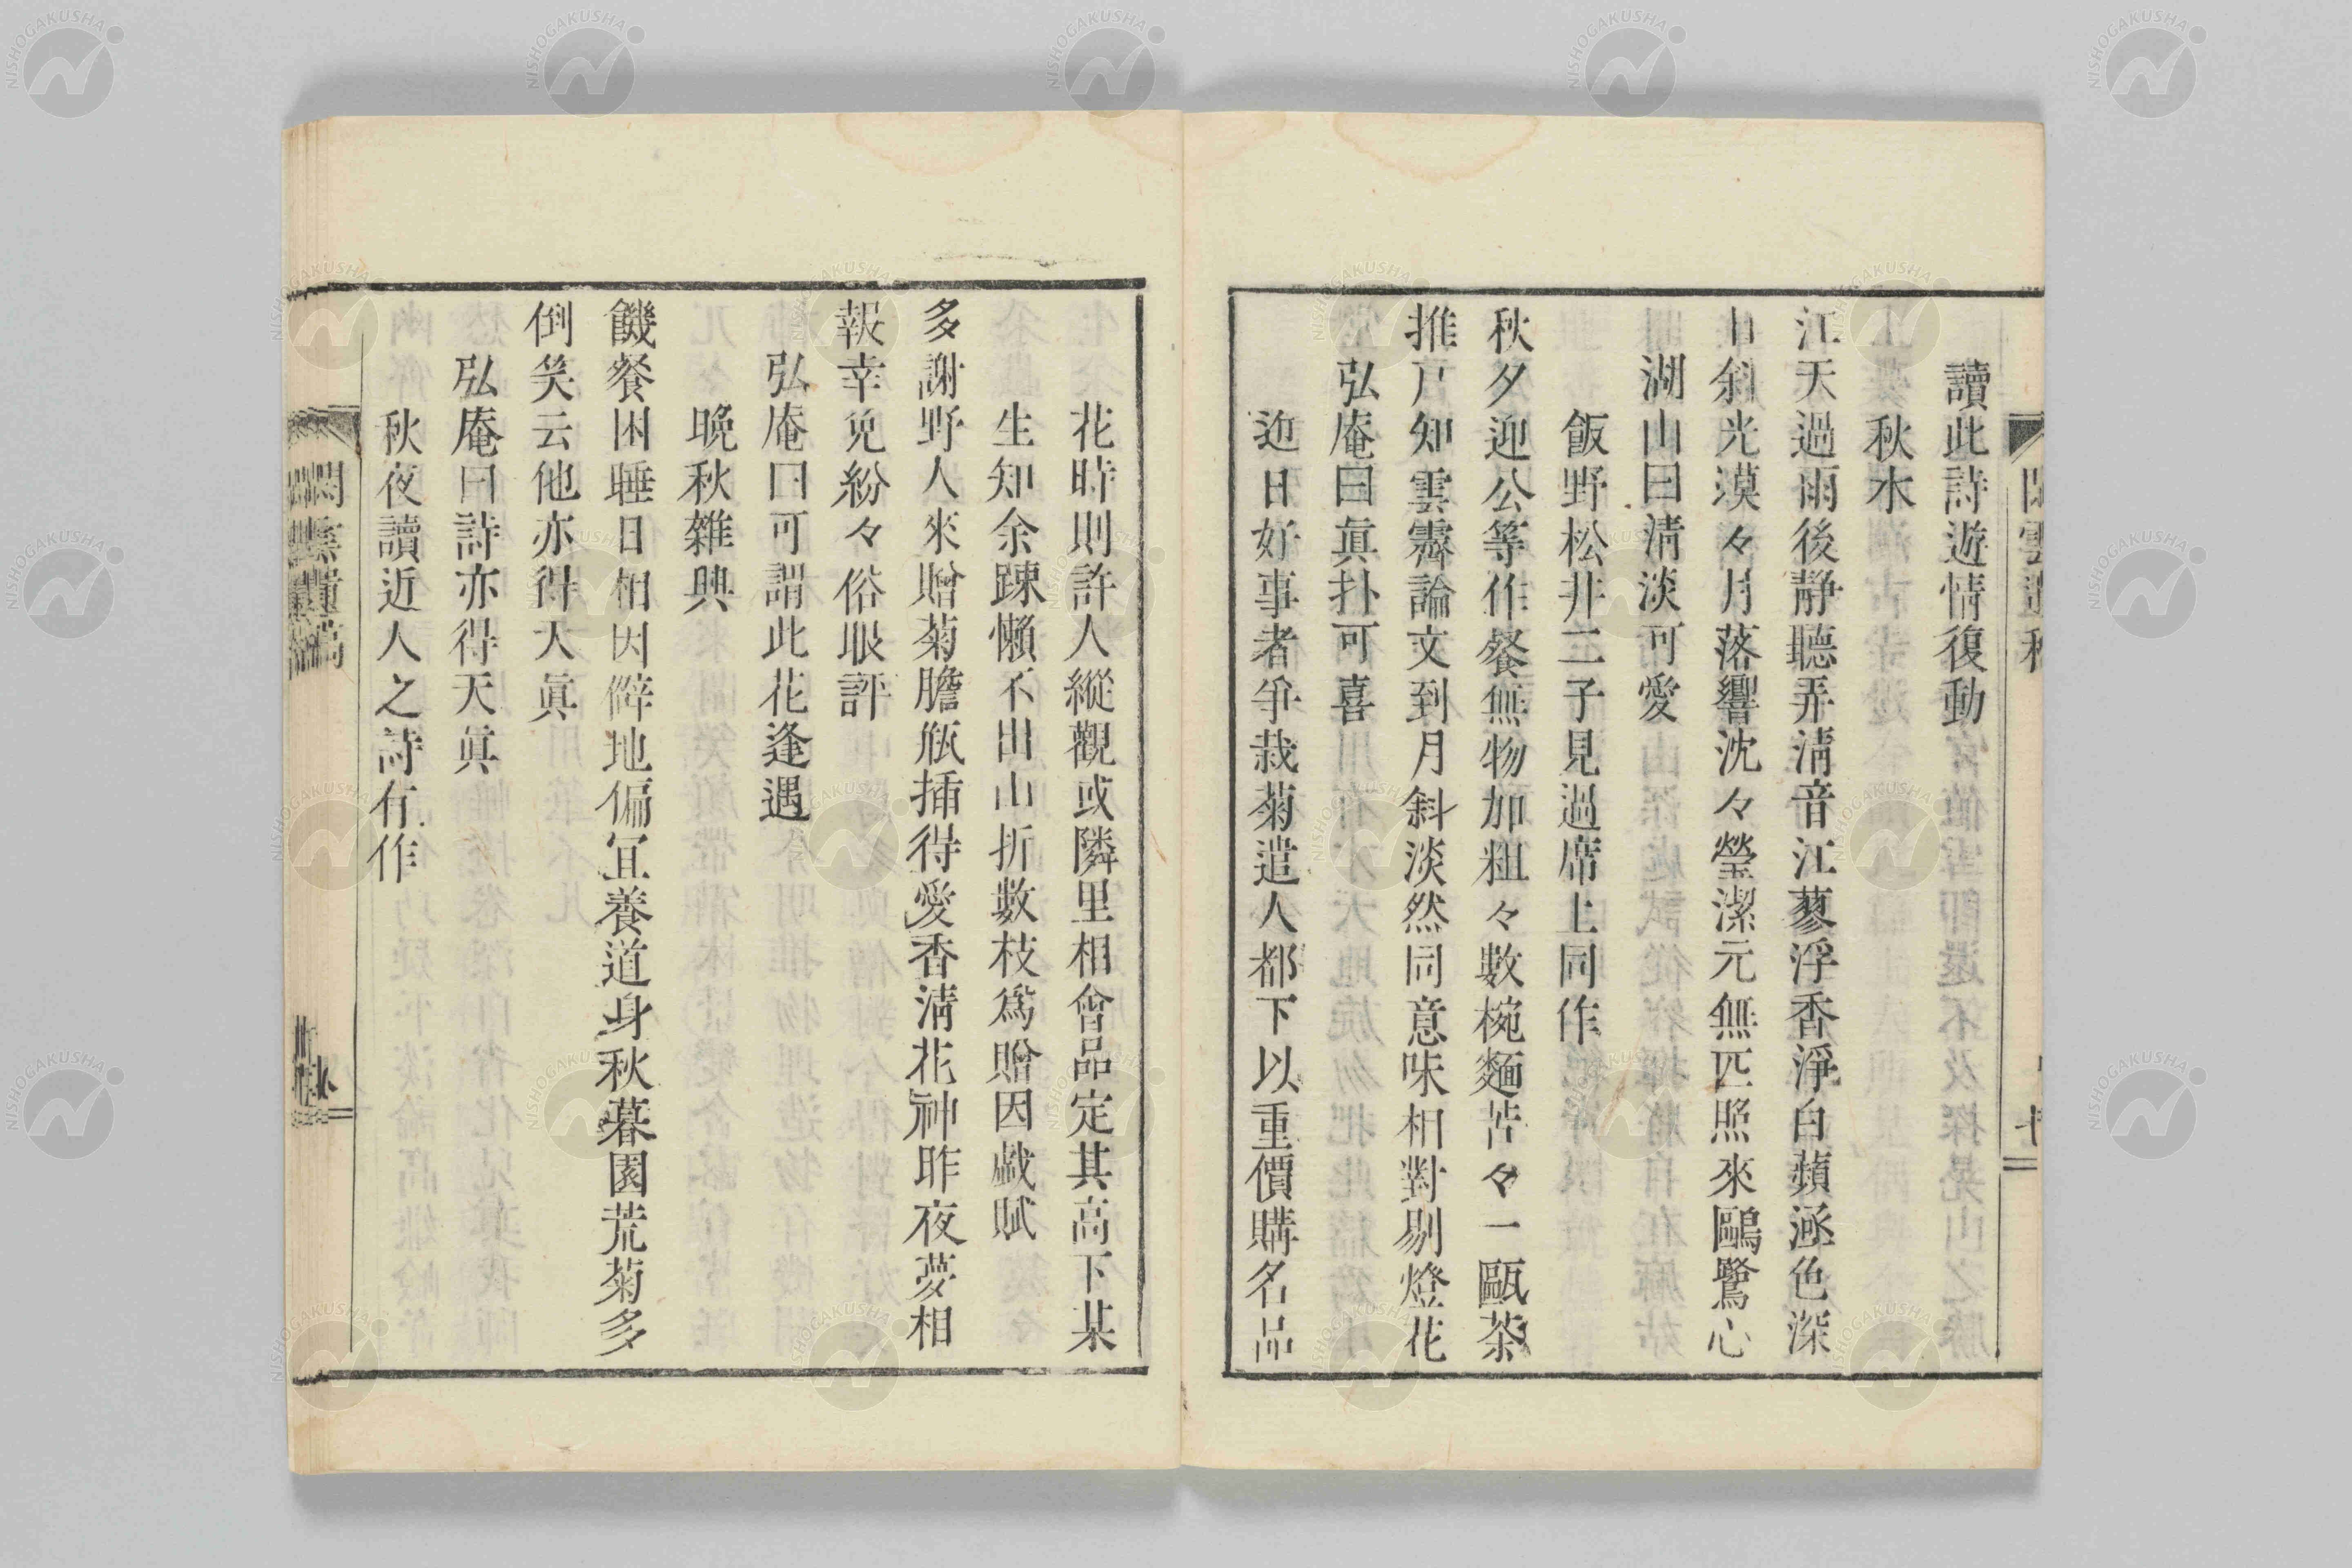 讀此詩遊情復動
秋水
江天過雨後靜聽弄淸音江蓼浮香淨白蘋涵色深
日斜光漠々月落響沈々瑩潔元無匹照來鷗鷺心
湖山曰淸淡可愛
飯野松井二子見過席上同作
秋夕迎公等作餐無物加粗々數椀麵苦々一甌茶
推戸知雲霽論文到月斜淡然同意味相對剔燈花
弘庵曰眞扑可喜
近日好事者爭栽菊遣人都下以重價購名品
花時則許人縱觀或隣里相會品定其高下某
生知余踈懶不出山折數枝爲贈因戯賦
多謝野人來贈菊膽瓶揷得愛香淸花神昨夜夢相
報幸免紛々俗眼評
弘庵曰可謂此花逢遇
晩秋雜興
饑餐困睡日相因僻地偏冝養道身秋暮園荒菊多
倒笑云他亦得天眞
弘庵曰詩亦得天眞
秋夜讀近人之詩有作